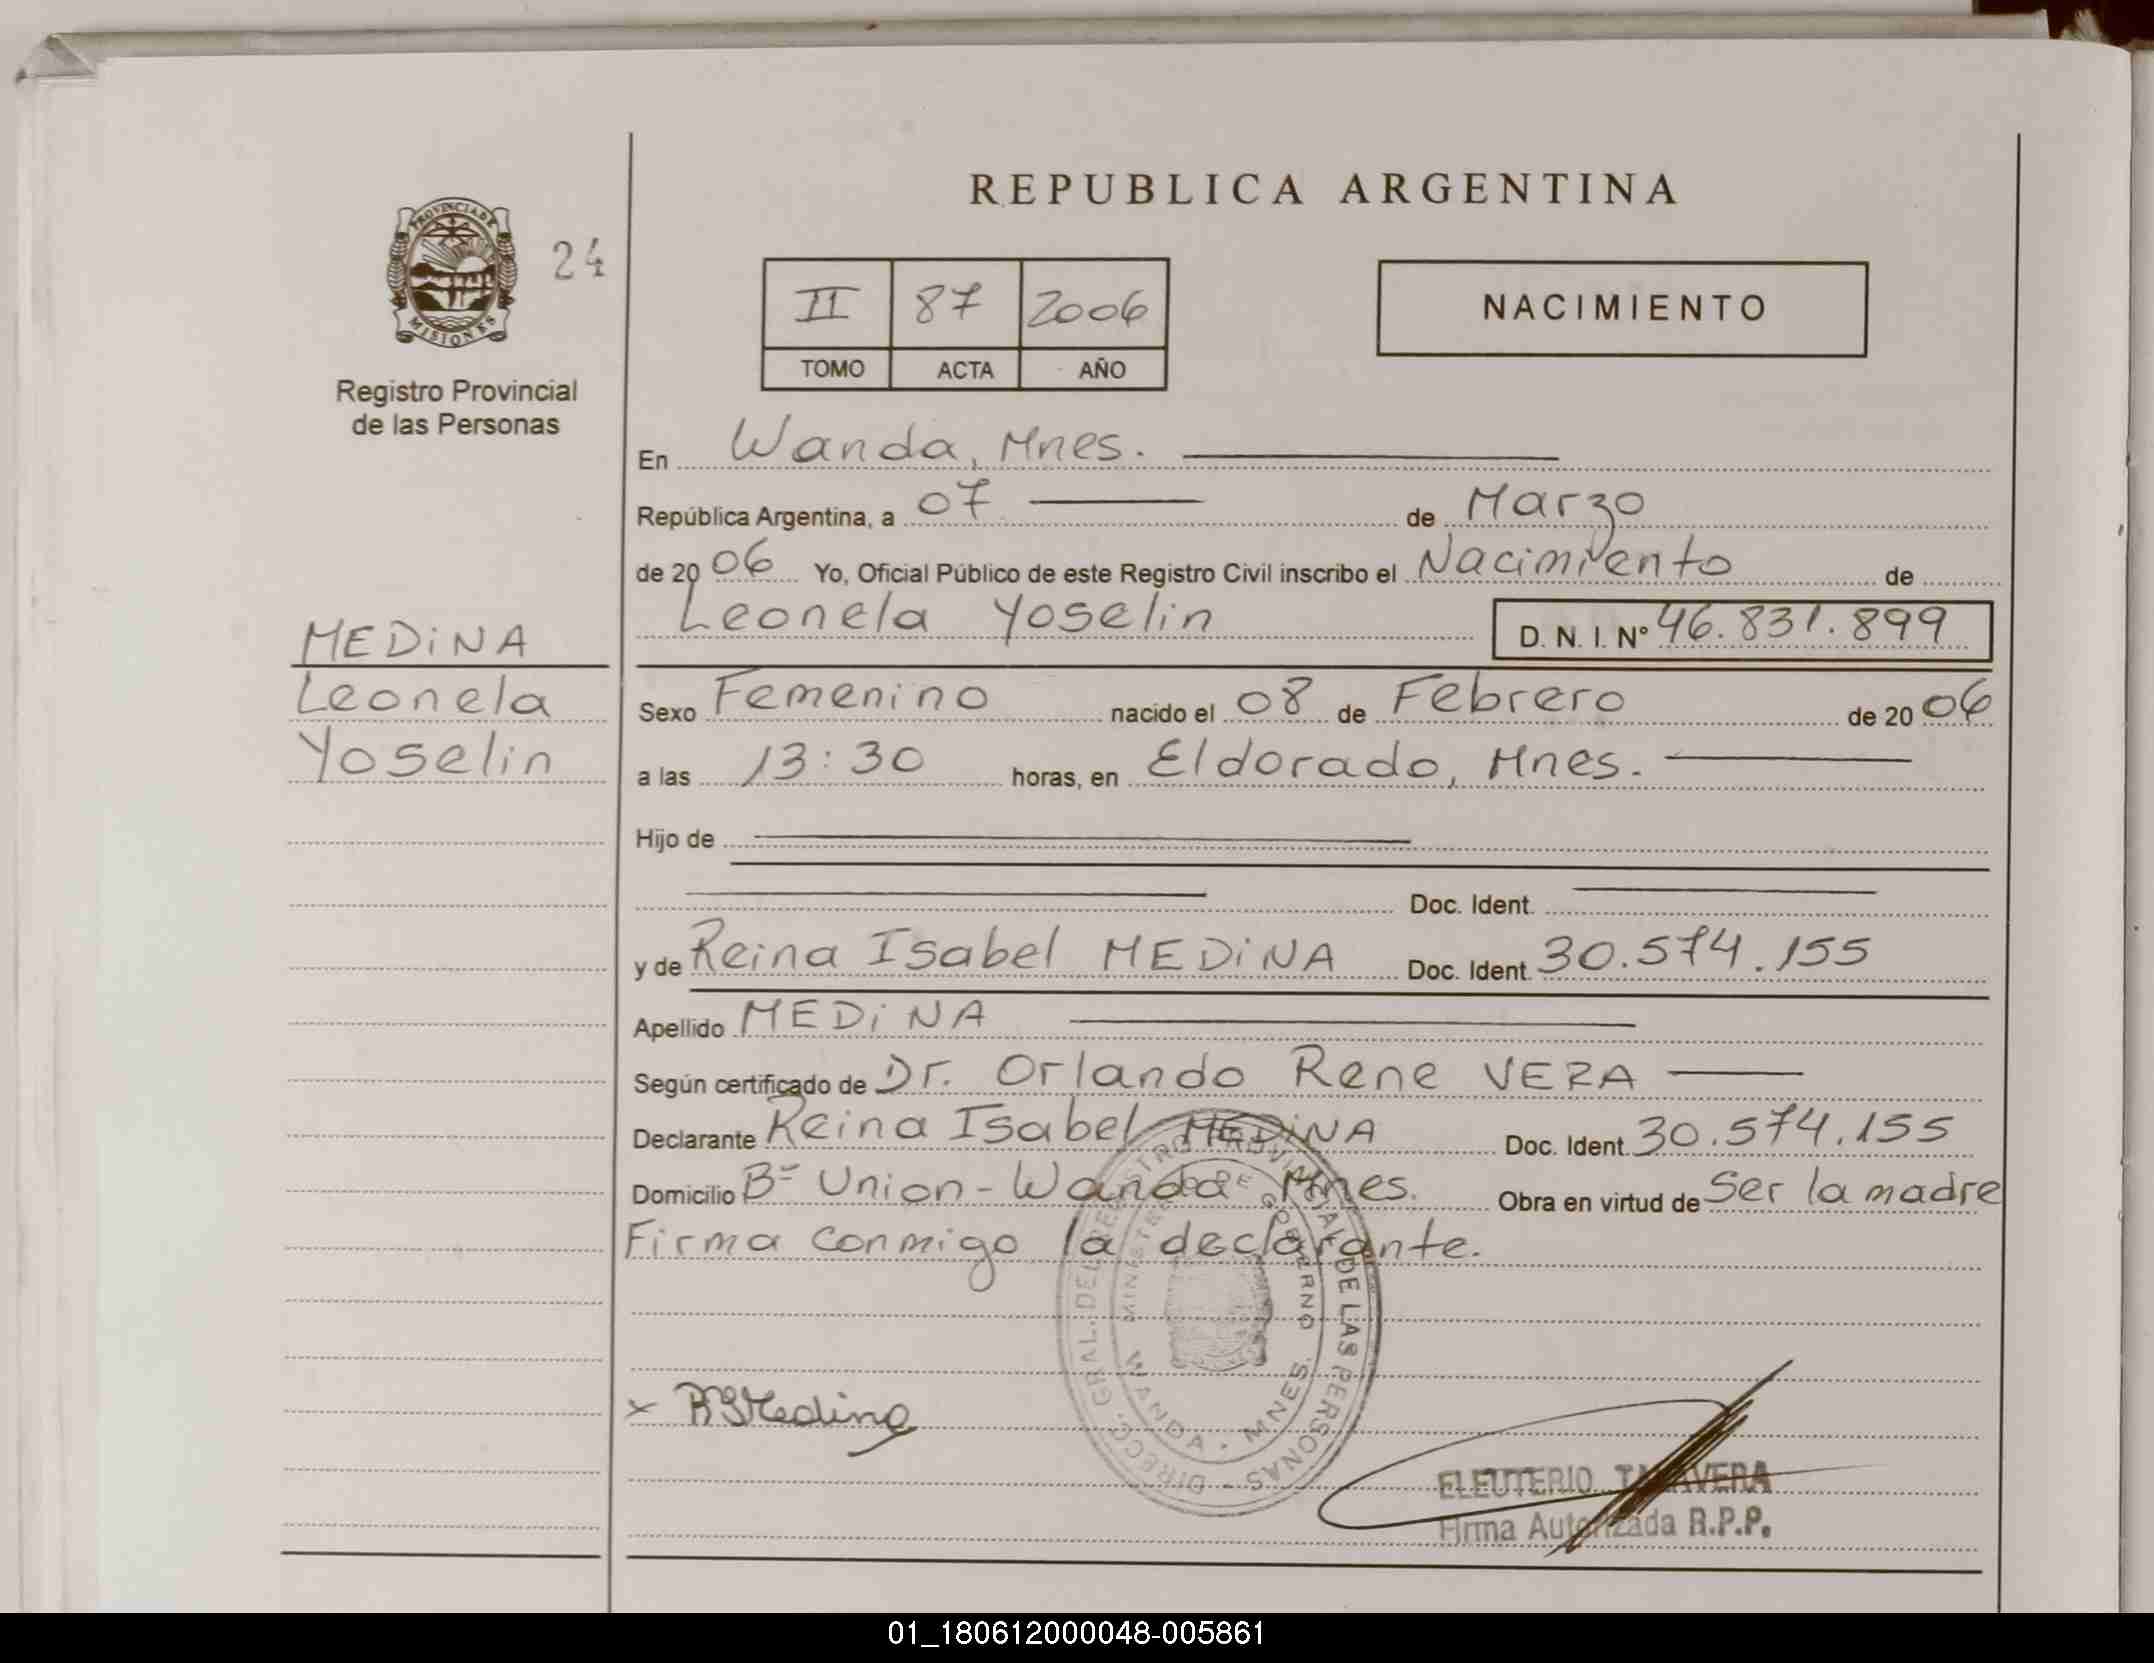 REPUBLICA ARGENTINA
PROVINCIA DE MISIONES
24
Registro Provincial
de las Personas
II 87 2006
TOMO ACTA AÑO
NACIMIENTO
En Wanda, Mnes.
República Argentina, a 07 de Marzo
de 2006 Yo, Oficial Público de este Registro Civil inscribo el Nacimiento de
Leonela Yoselin D. N. I. Nº 46.831.899
MEDiNA
Leonela
Yoselin
Sexo Femenino nacido el 08 de Febrero de 2006
a las 13:30 horas, en Eldorado, Mnes.
Hijo de
Doc. Ident.
y de Reina Isabel MEDiNA Doc. Ident. 30.574.155
Apellido MEDiNA
Según certificado de Dr. Orlando Rene VERA
Declarante Reina Isabel MEDiNA Doc. Ident. 30.574.155
Domicilio Bº Union - Wanda Mnes. Obra en virtud de Ser la madre
Firma conmigo la declarante.
DIRECC. GRAL. DEL REGISTRO PROVINCIAL DE LAS PERSONAS
MINISTERIO DE GOBIERNO
WANDA - MNES.
x RIMedina
ELEUTERIO TALAVERA
Firma Autorizada R.P.P.
01_180612000048-005861